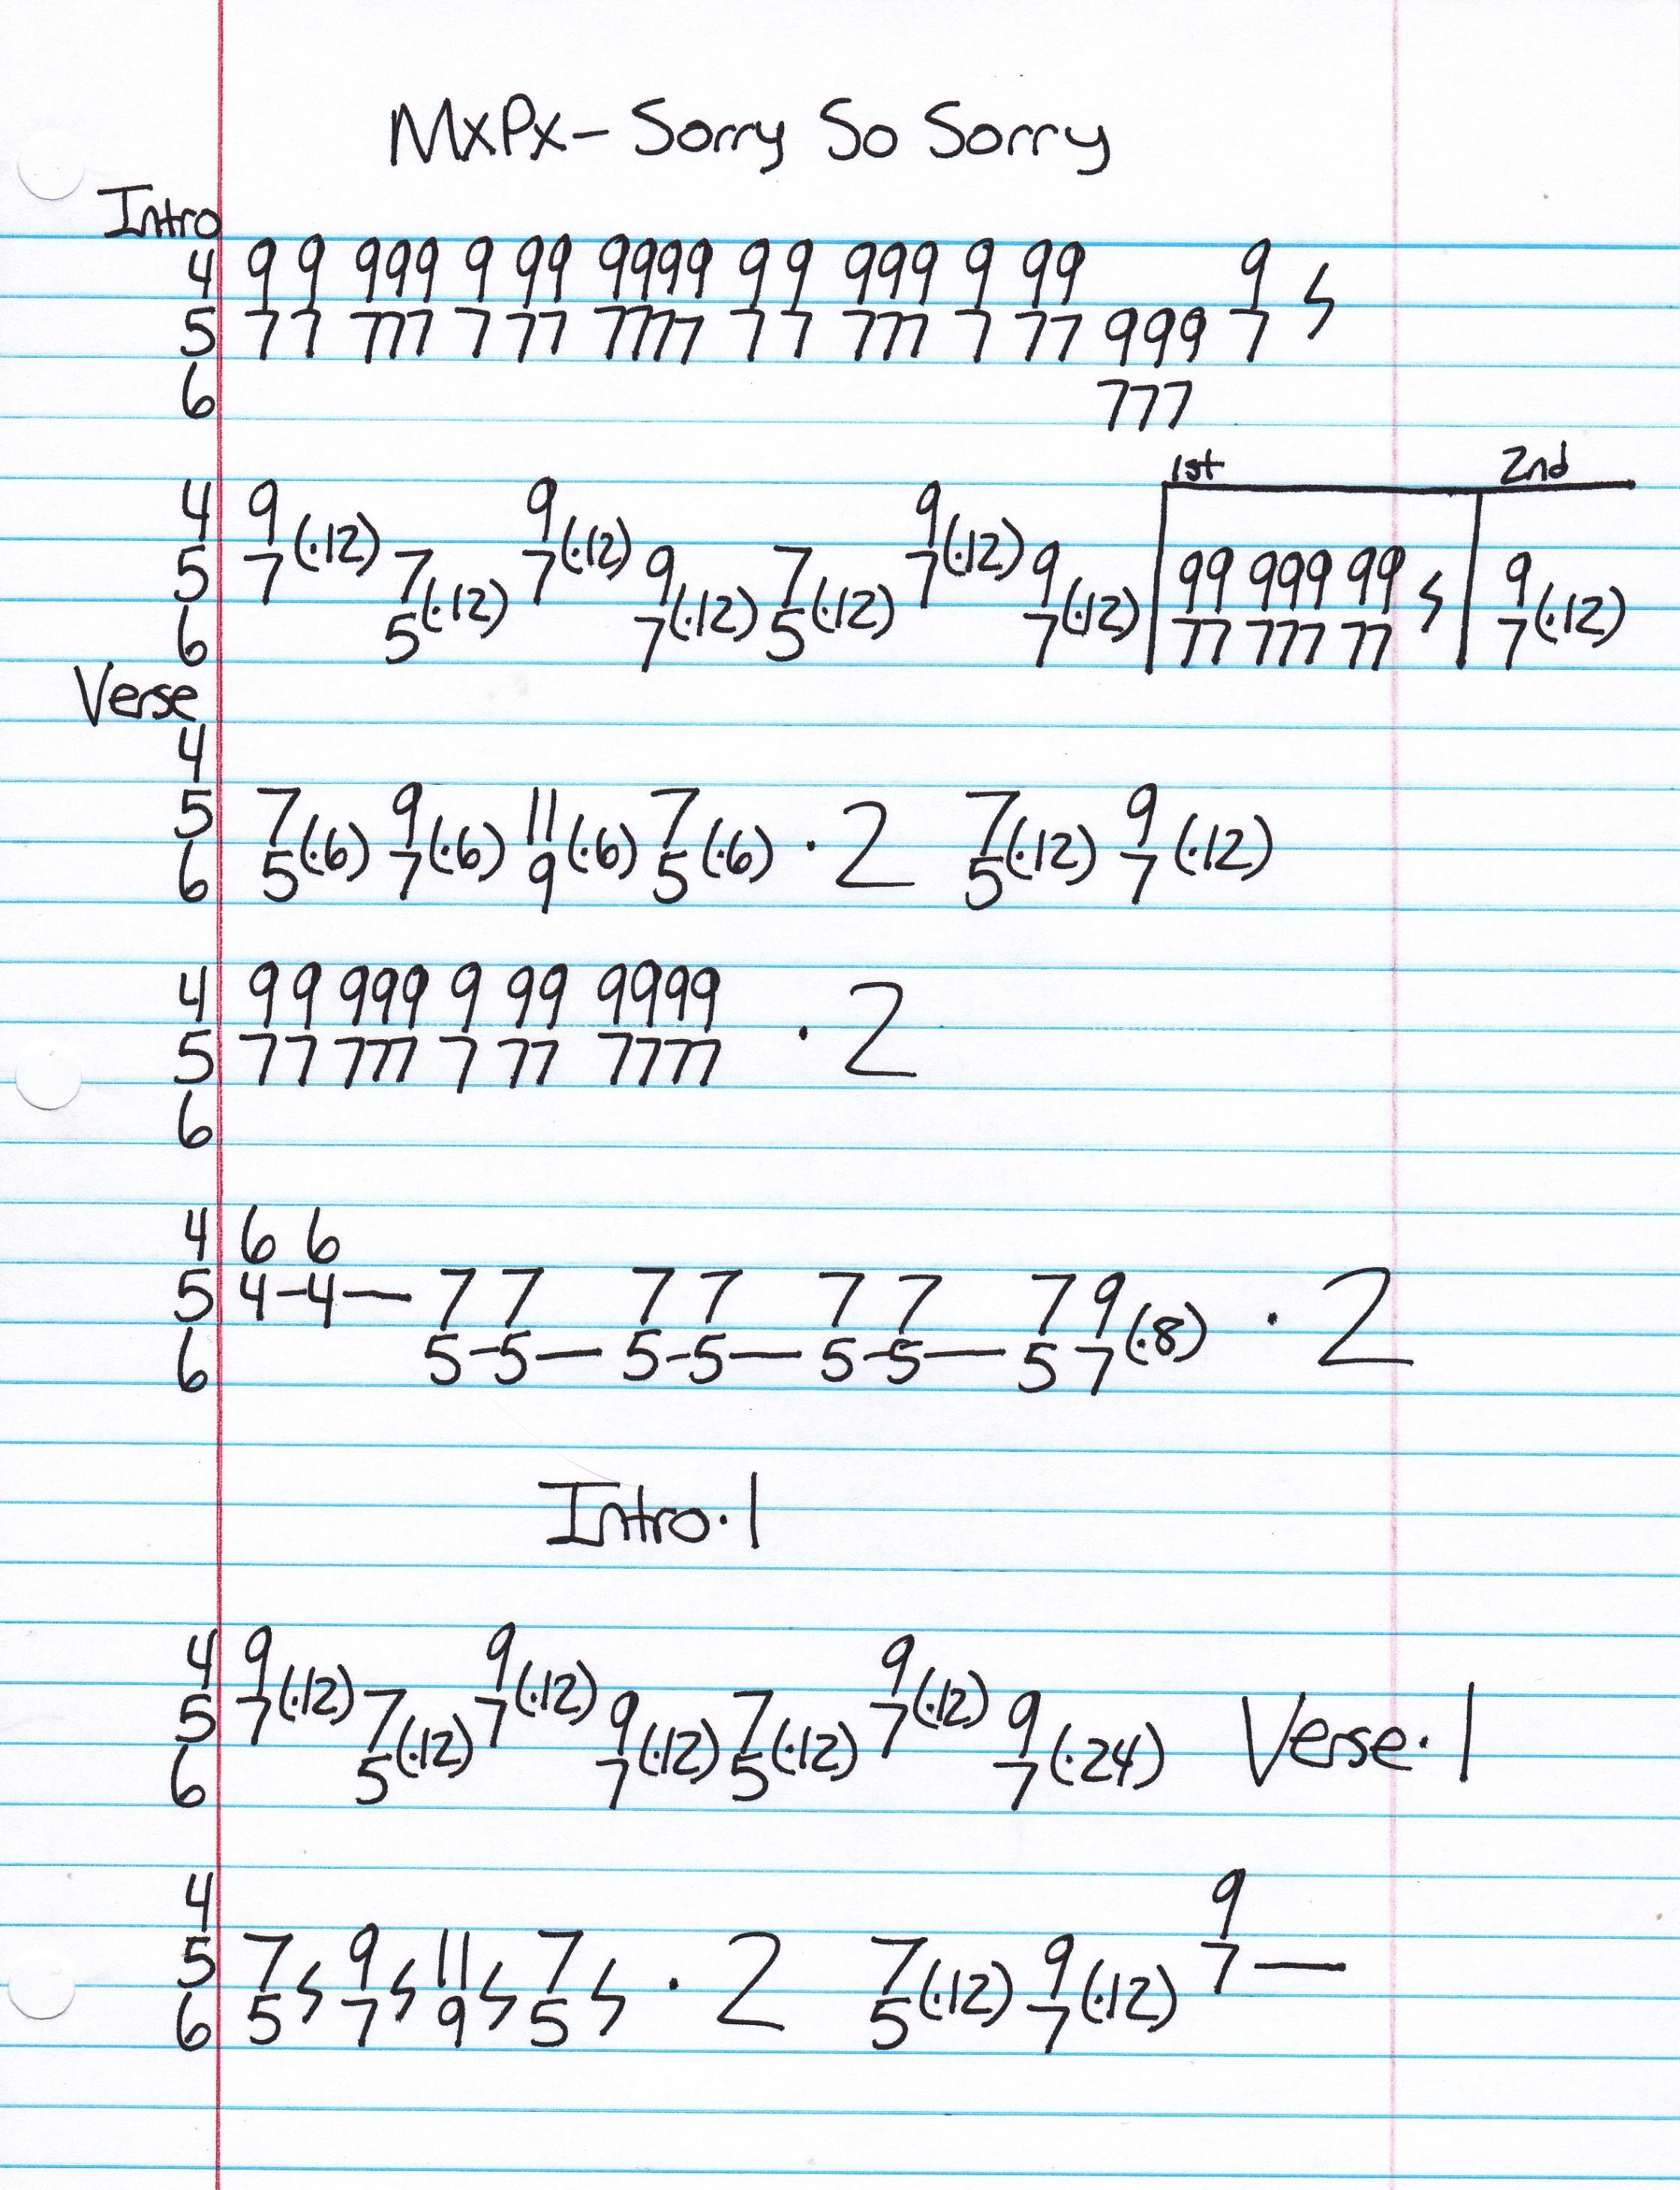 MxPx - Sorry So Sorry
Intro
4 9 9 999 9 99 9999 9 9 999 9 99 9
5 7 7 777 7 77 7777 7 7 777 7 77 999 7
6 777
1st 2nd
4 9 9 9
5 7 (·12) 7 7 (·12) 9 7 7 (·12) 9 99 999 99 9
6 5 (·12) 7 (·12) 5 (·12) 7 (·12) 77 777 77 7 (·12)
Verse
4
5 7 9 11 7 7 9
6 5 (·6) 7 (·6) 9 (·6) 5 (·6) · 2 5 (·12) 7 (·12)
4 9 9 999 9 99 9999
5 7 7 777 7 77 7777 · 2
6
4 6 6
5 4-4— 7 7 7 7 7 7 7 9
6 5-5— 5-5— 5-5— 5 7 (·8) · 2
Intro·1
4 9 9 9
5 7 (·12) 7 7 (·12) 9 7 7 (·12) 9 Verse·1
6 5 (·12) 7 (·12) 5 (·12) 7 (·24)
4 9
5 7 9 11 7 7 9 7—
6 5 7 9 5 · 2 5 (·12) 7 (·12)